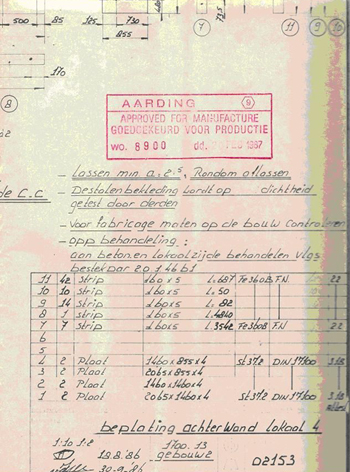 500 85 125 730
855
170
7 11 9 10
8
AARDING 9
APPROVED FOR MANUFACTURE
GOEDGEKEURD VOOR PRODUCTIE
wo. 8900 dd. 1987
- Lassen min a. 2.5, Rondom aflassen
- De stalen bekleding wordt op dichtheid
getest door derden
de C.C
- Voor fabricage maten op de bouw Controleren
- opp behandeling :
aan beton en lokaalzijde behandelen vlgs
bestek par 20 146 b1
11 42 Strip 60x5 L.687 Fe360B FN 22
10 10 Strip 60x5 L.50
9 14 Strip 60x5 L.82
8 1 Strip 60x5 L.4840
7 7 Strip 60x5 L.3542 Fe360B FN 22
6
5
4 2 Plaat 1460x855x4 St 37.2 DIN 17100 3.1B
3 2 Plaat 2065x855x4
2 2 Plaat 1460x1460x4
1 2 Plaat 2065x1460x4 St 37.2 DIN 17100 3.1B
beplating achterwand lokaal 4
1:10 1:2 1700.13
19.8.86 gebouw 2
30.9.86 D2153